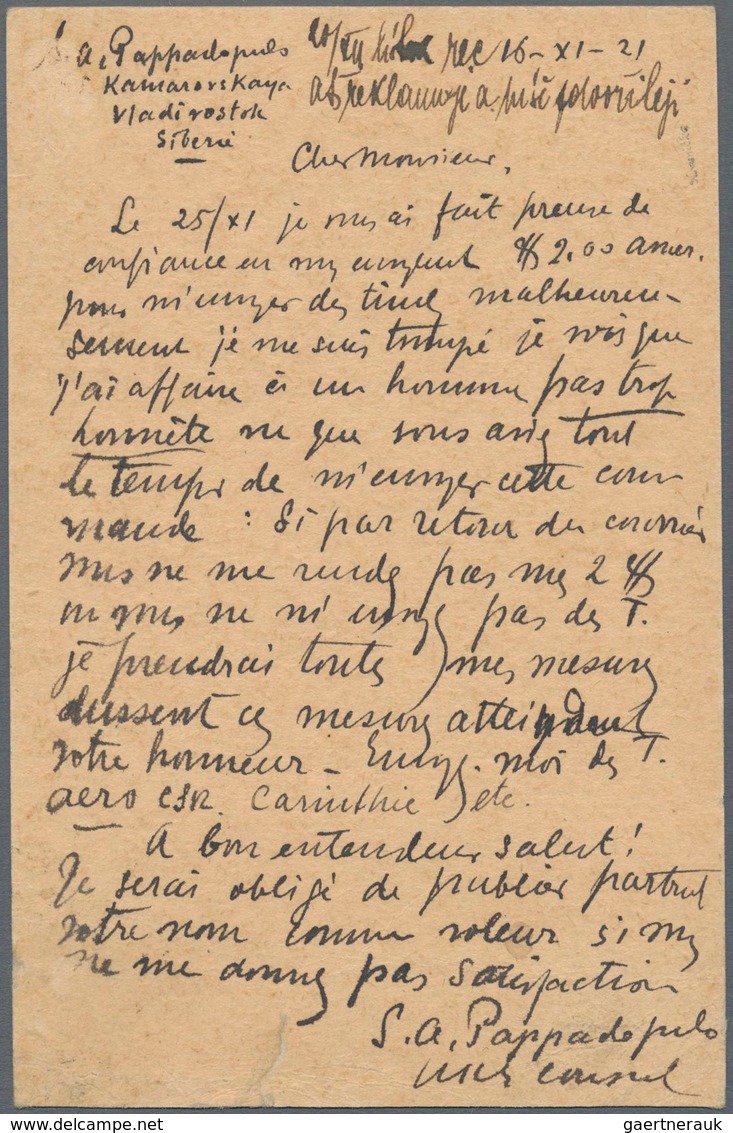 S. A. Pappadopulo
Kamarovskaya
Vladivostok
Siberie
rec 16-XI-21
a
Cher Monsieur,
Le 25/XI je vous ai fait preuve de
confiance en vs envoyant $ 2.00 amer.
pour m'envoyer des timb malheureu-
sement je me suis trompé je vois que
j'ai affaire à un homme pas trop
honnête vu que vous aviez tout
le temps de m'envoyer cette com
mande : Si par retour du courrier
vous ne me rendez pas mes 2 $
ou vous ne m'envoyez pas des T.
je prendrai toutes mes mesures
dussent ces mesures atteindre
votre honneur - Envoyez-moi des T.
aero CSR. Carinthie etc.
A bon entendeur salut!
Je serai obligé de publier partout
votre nom comme voleur si vous
ne me donnez pas satisfaction
S. A. Pappadopulo
consul
gaertnerauk